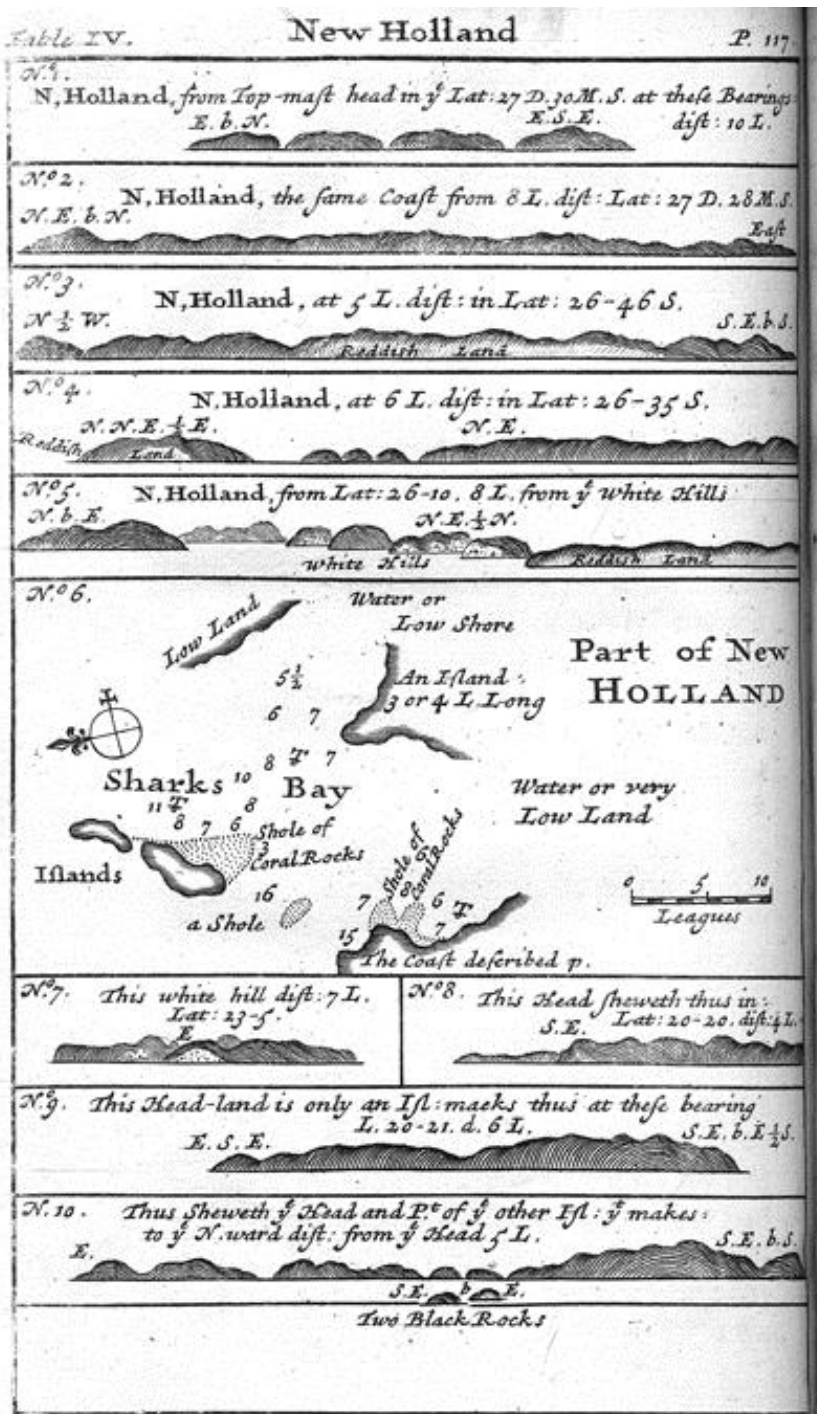 Table IV. New Holland P. 117.
N.º1.
N, Holland, from Top-maſt head in yͤ Lat: 27 D. 30 M. S. at theſe Bearings
E. b. N. E. S. E. diſt: 10 L.
N.º2.
N, Holland, the ſame Coaſt from 8 L. diſt: Lat: 27 D. 28 M. S.
N. E. b. N. Eaſt
N.º3.
N, Holland, at 5 L. diſt: in Lat: 26-46 S.
N ½ W. S. E. b. S.
Reddiſh Land
N.º4.
N, Holland, at 6 L. diſt: in Lat: 26-35 S.
N. N. E. ½ E. N. E.
Reddiſh Land
N.º5.
N, Holland, from Lat: 26-10. 8 L. from yͤ White Hills
N. b. E. N. E. ½ N.
White Hills Reddiſh Land
N.º6.
Low Land
Water or
Low Shore
Part of New
HOLLAND
An Iſland :
3 or 4 L. Long
5½
6 7
L
8 T 7
Sharks 10 Bay
Water or very
Low Land
11 T 8
8 7 6
Shole of
3
Coral Rocks
Iſlands
Shole of
Coral Rocks
16
a Shole
7 8 6 6 T
15 7
0 5 10
Leagues
The Coaſt deſcribed p.
N.º7. This white hill diſt: 7 L.
Lat: 23-5.
E
N.º8. This Head ſheweth thus in:
S. E. Lat: 20-20. diſt: 4 L.
N.º9. This Head-land is only an Iſl: maeks thus at theſe bearing
L. 20-21. d. 6 L.
E. S. E. S. E. b. E ½ S.
N. 10. Thus Sheweth yͤ Head and P.ᵗ of yͤ other Iſl: yᵗ makes:
to yͤ N.ward diſt: from yͤ Head 5 L.
E. S. E. b. S.
S. E. b E.
Two Black Rocks